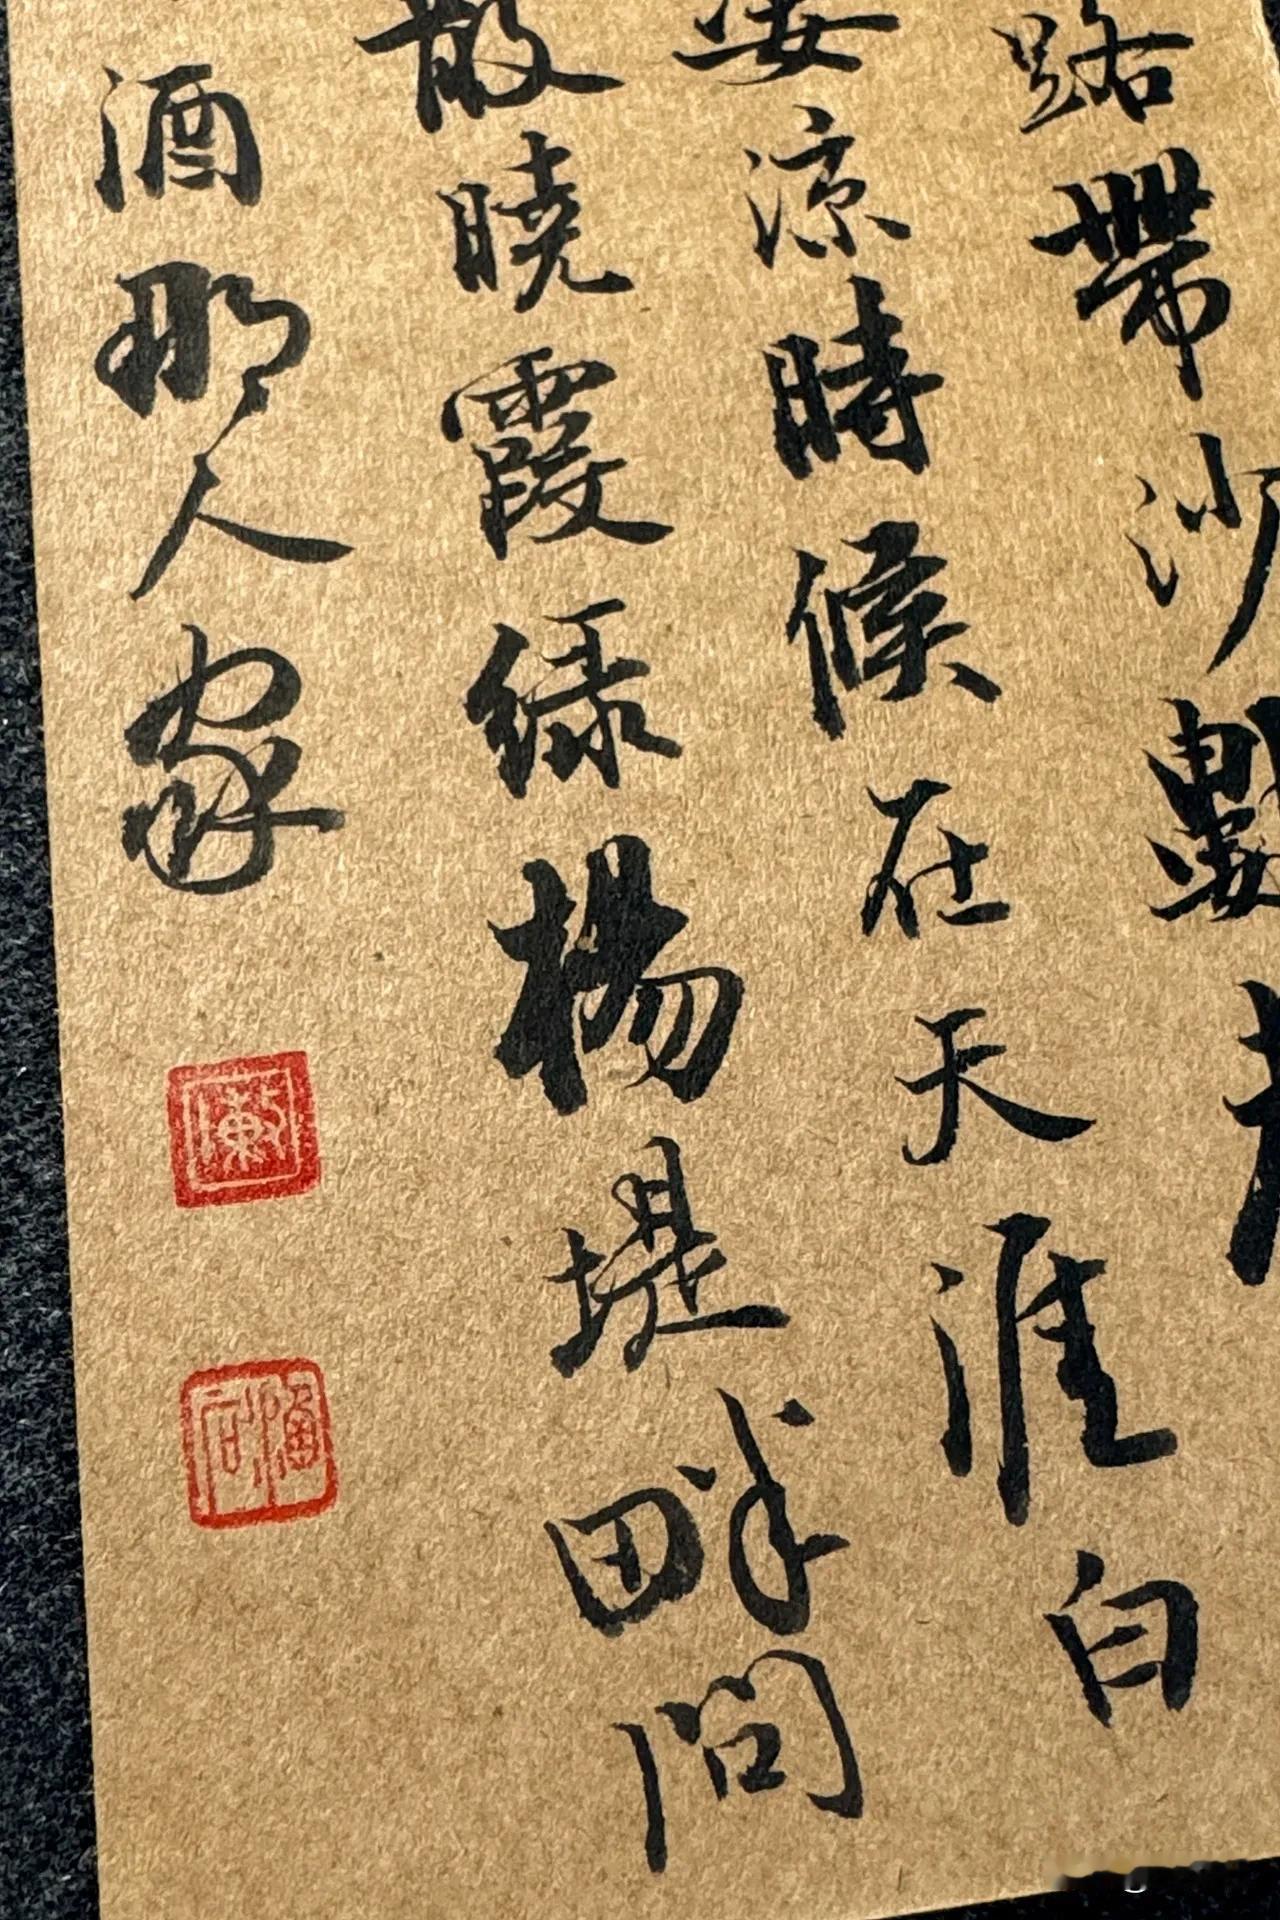 路帶沙數
涼時候在天涯白
散曉霞綠楊堤畔問
酒那人家